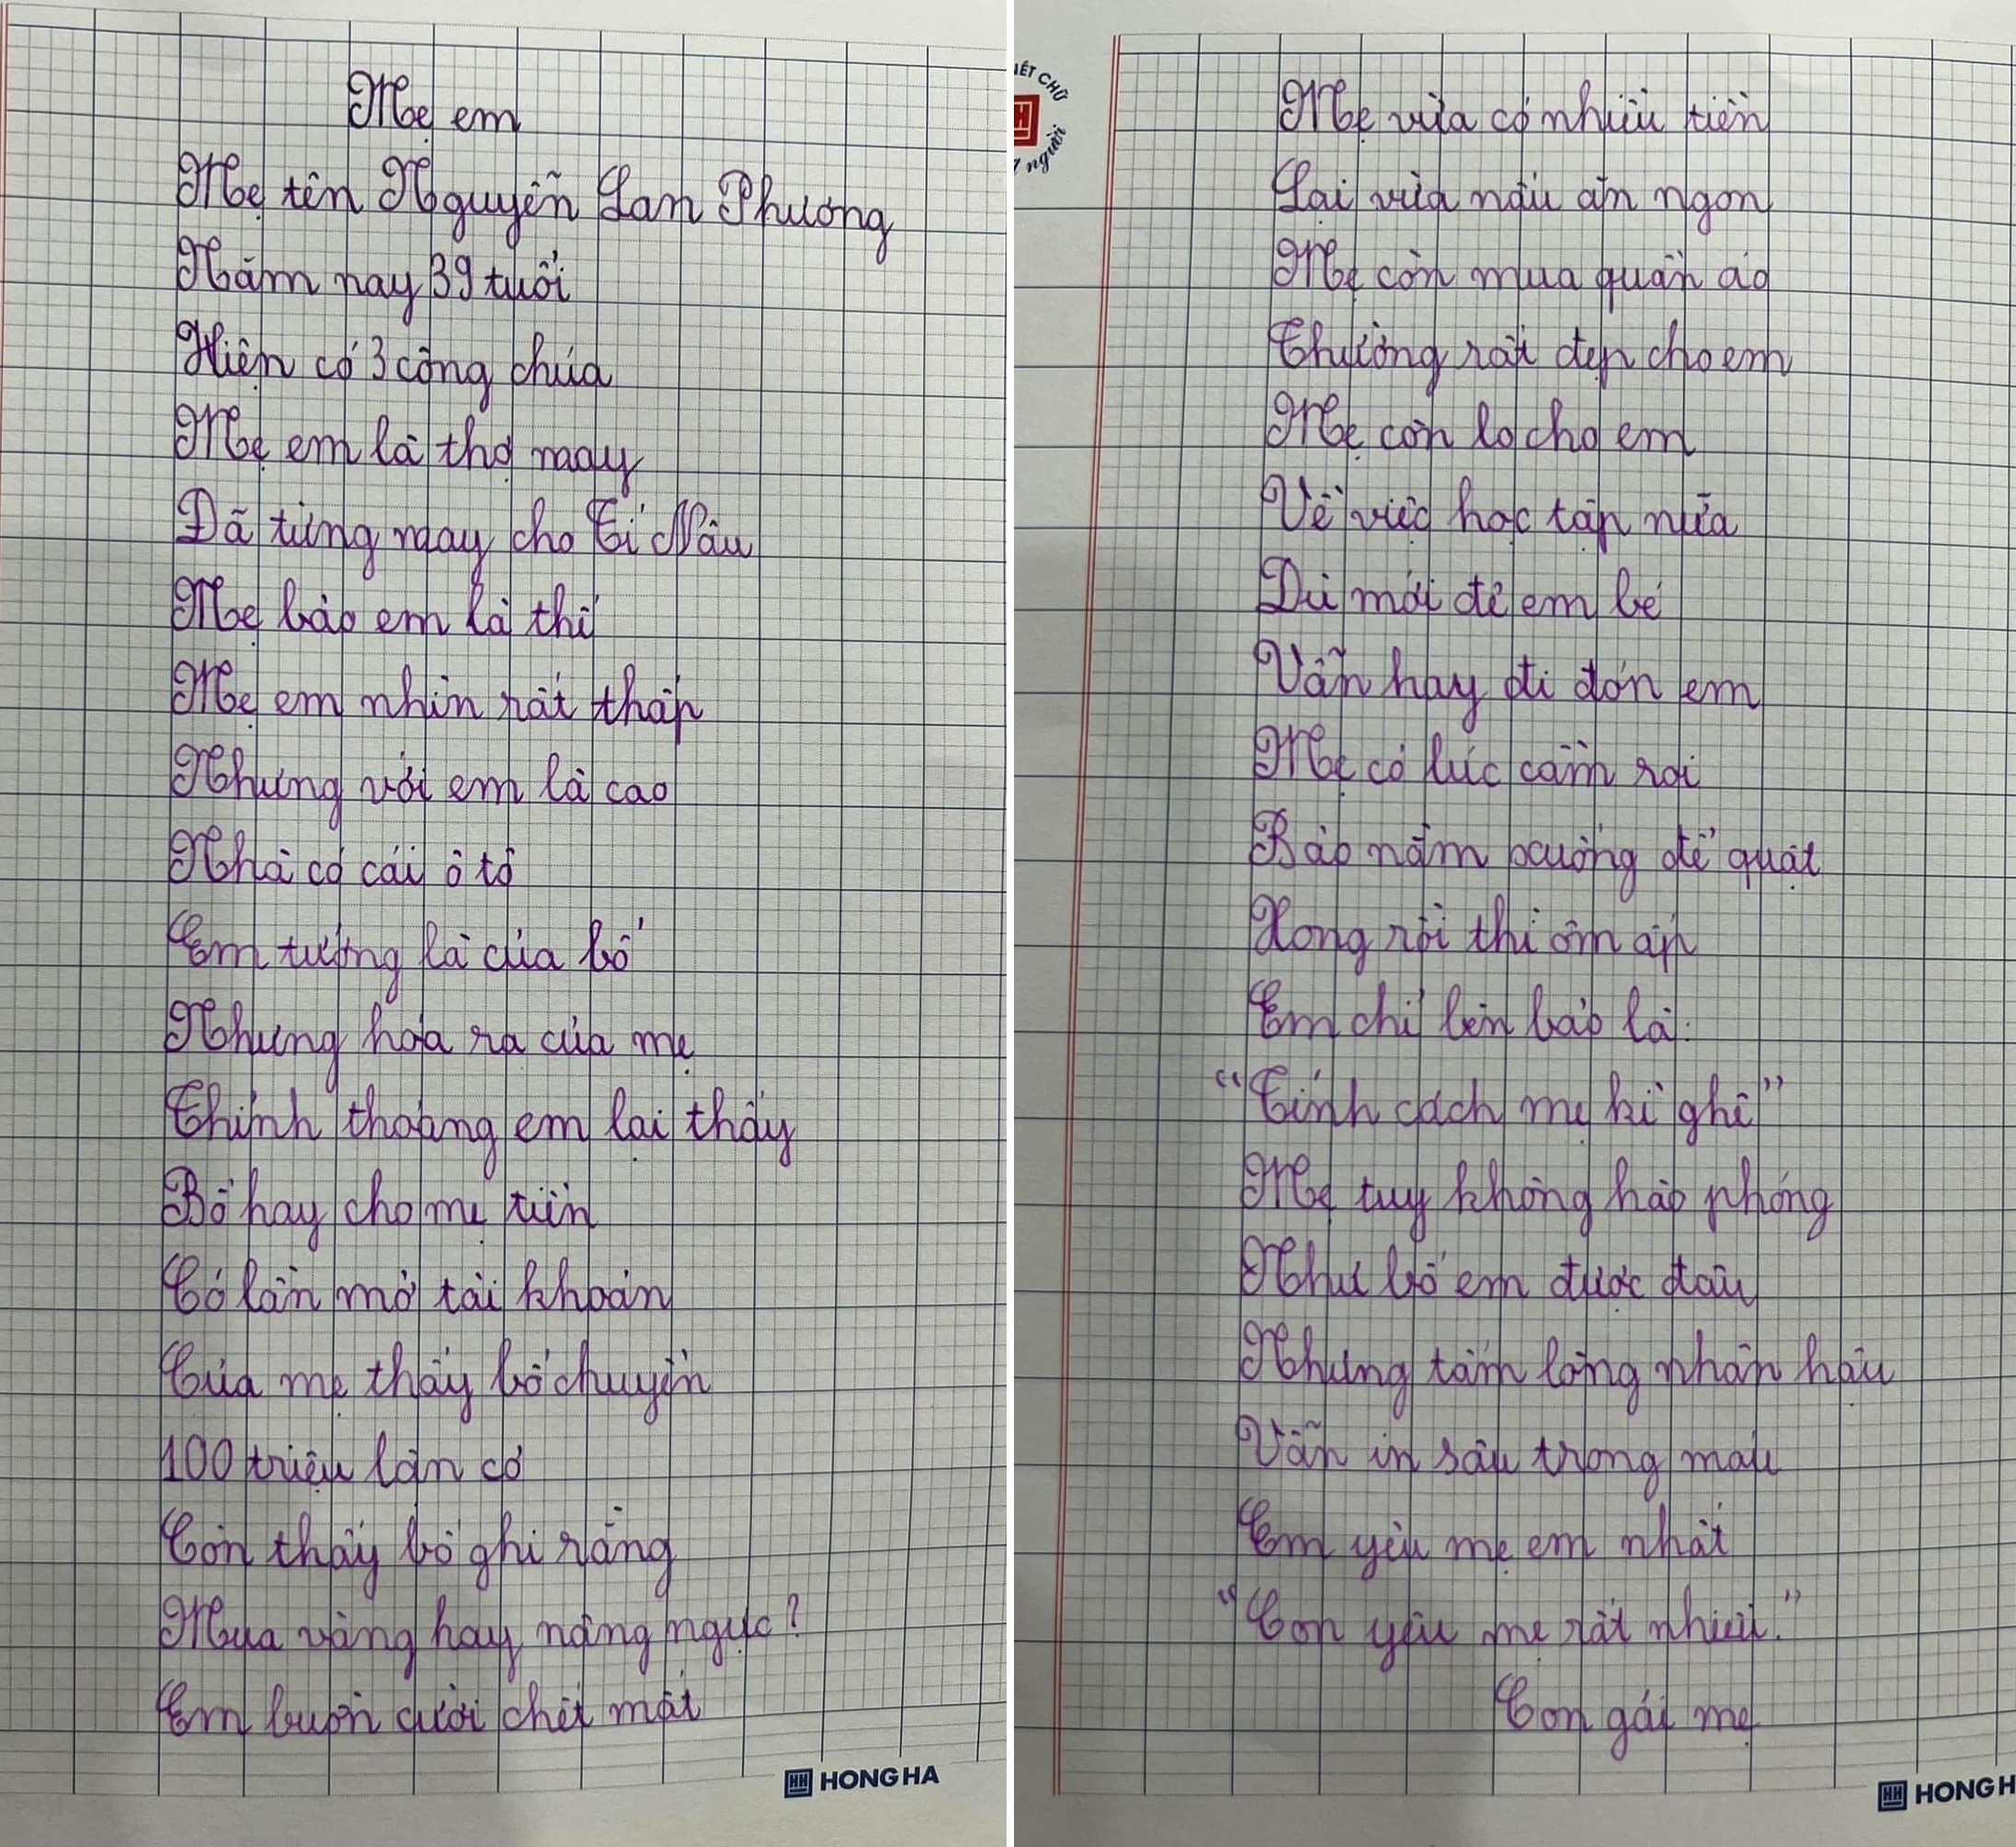 Mẹ em
Mẹ tên Nguyễn Lan Phương
Năm nay 39 tuổi
Hiện có 3 công chúa
Mẹ em là thợ may
Đã từng may cho Tí Nâu
Mẹ bảo em là thế
Mẹ em nhìn rất thấp
Nhưng với em là cao
Nhà có cái ô tô
Em tưởng là của bố
Nhưng hóa ra của mẹ
Thỉnh thoảng em lại thấy
Bố hay cho mẹ tiền
Có lần mở tài khoản
Của mẹ thấy bố chuyển
100 triệu lận cơ
Còn thấy bố ghi rằng
Mua vàng hay nâng ngực?
Em buồn cười chết mất
HONG HA
ẾT CHỮ
người
Mẹ vừa có nhiều tiền
Lại vừa nấu ăn ngon
Mẹ còn mua quần áo
Thường rất đẹp cho em
Mẹ còn lo cho em
Về việc học tập nữa
Dù mới đẻ em bé
Vẫn hay đi đón em
Mẹ có lúc cầm roi
Bảo nằm xuống để quật
Xong rồi thì ôm ấp
Em chỉ lên bảo là:
"Tính cách mẹ kì ghê"
Mẹ tuy không hào phóng
Như bố em được đâu
Nhưng tấm lòng nhân hậu
Vẫn in sâu trong máu
Em yêu mẹ em nhất
"Con yêu mẹ rất nhiều."
Con gái mẹ
HONG H